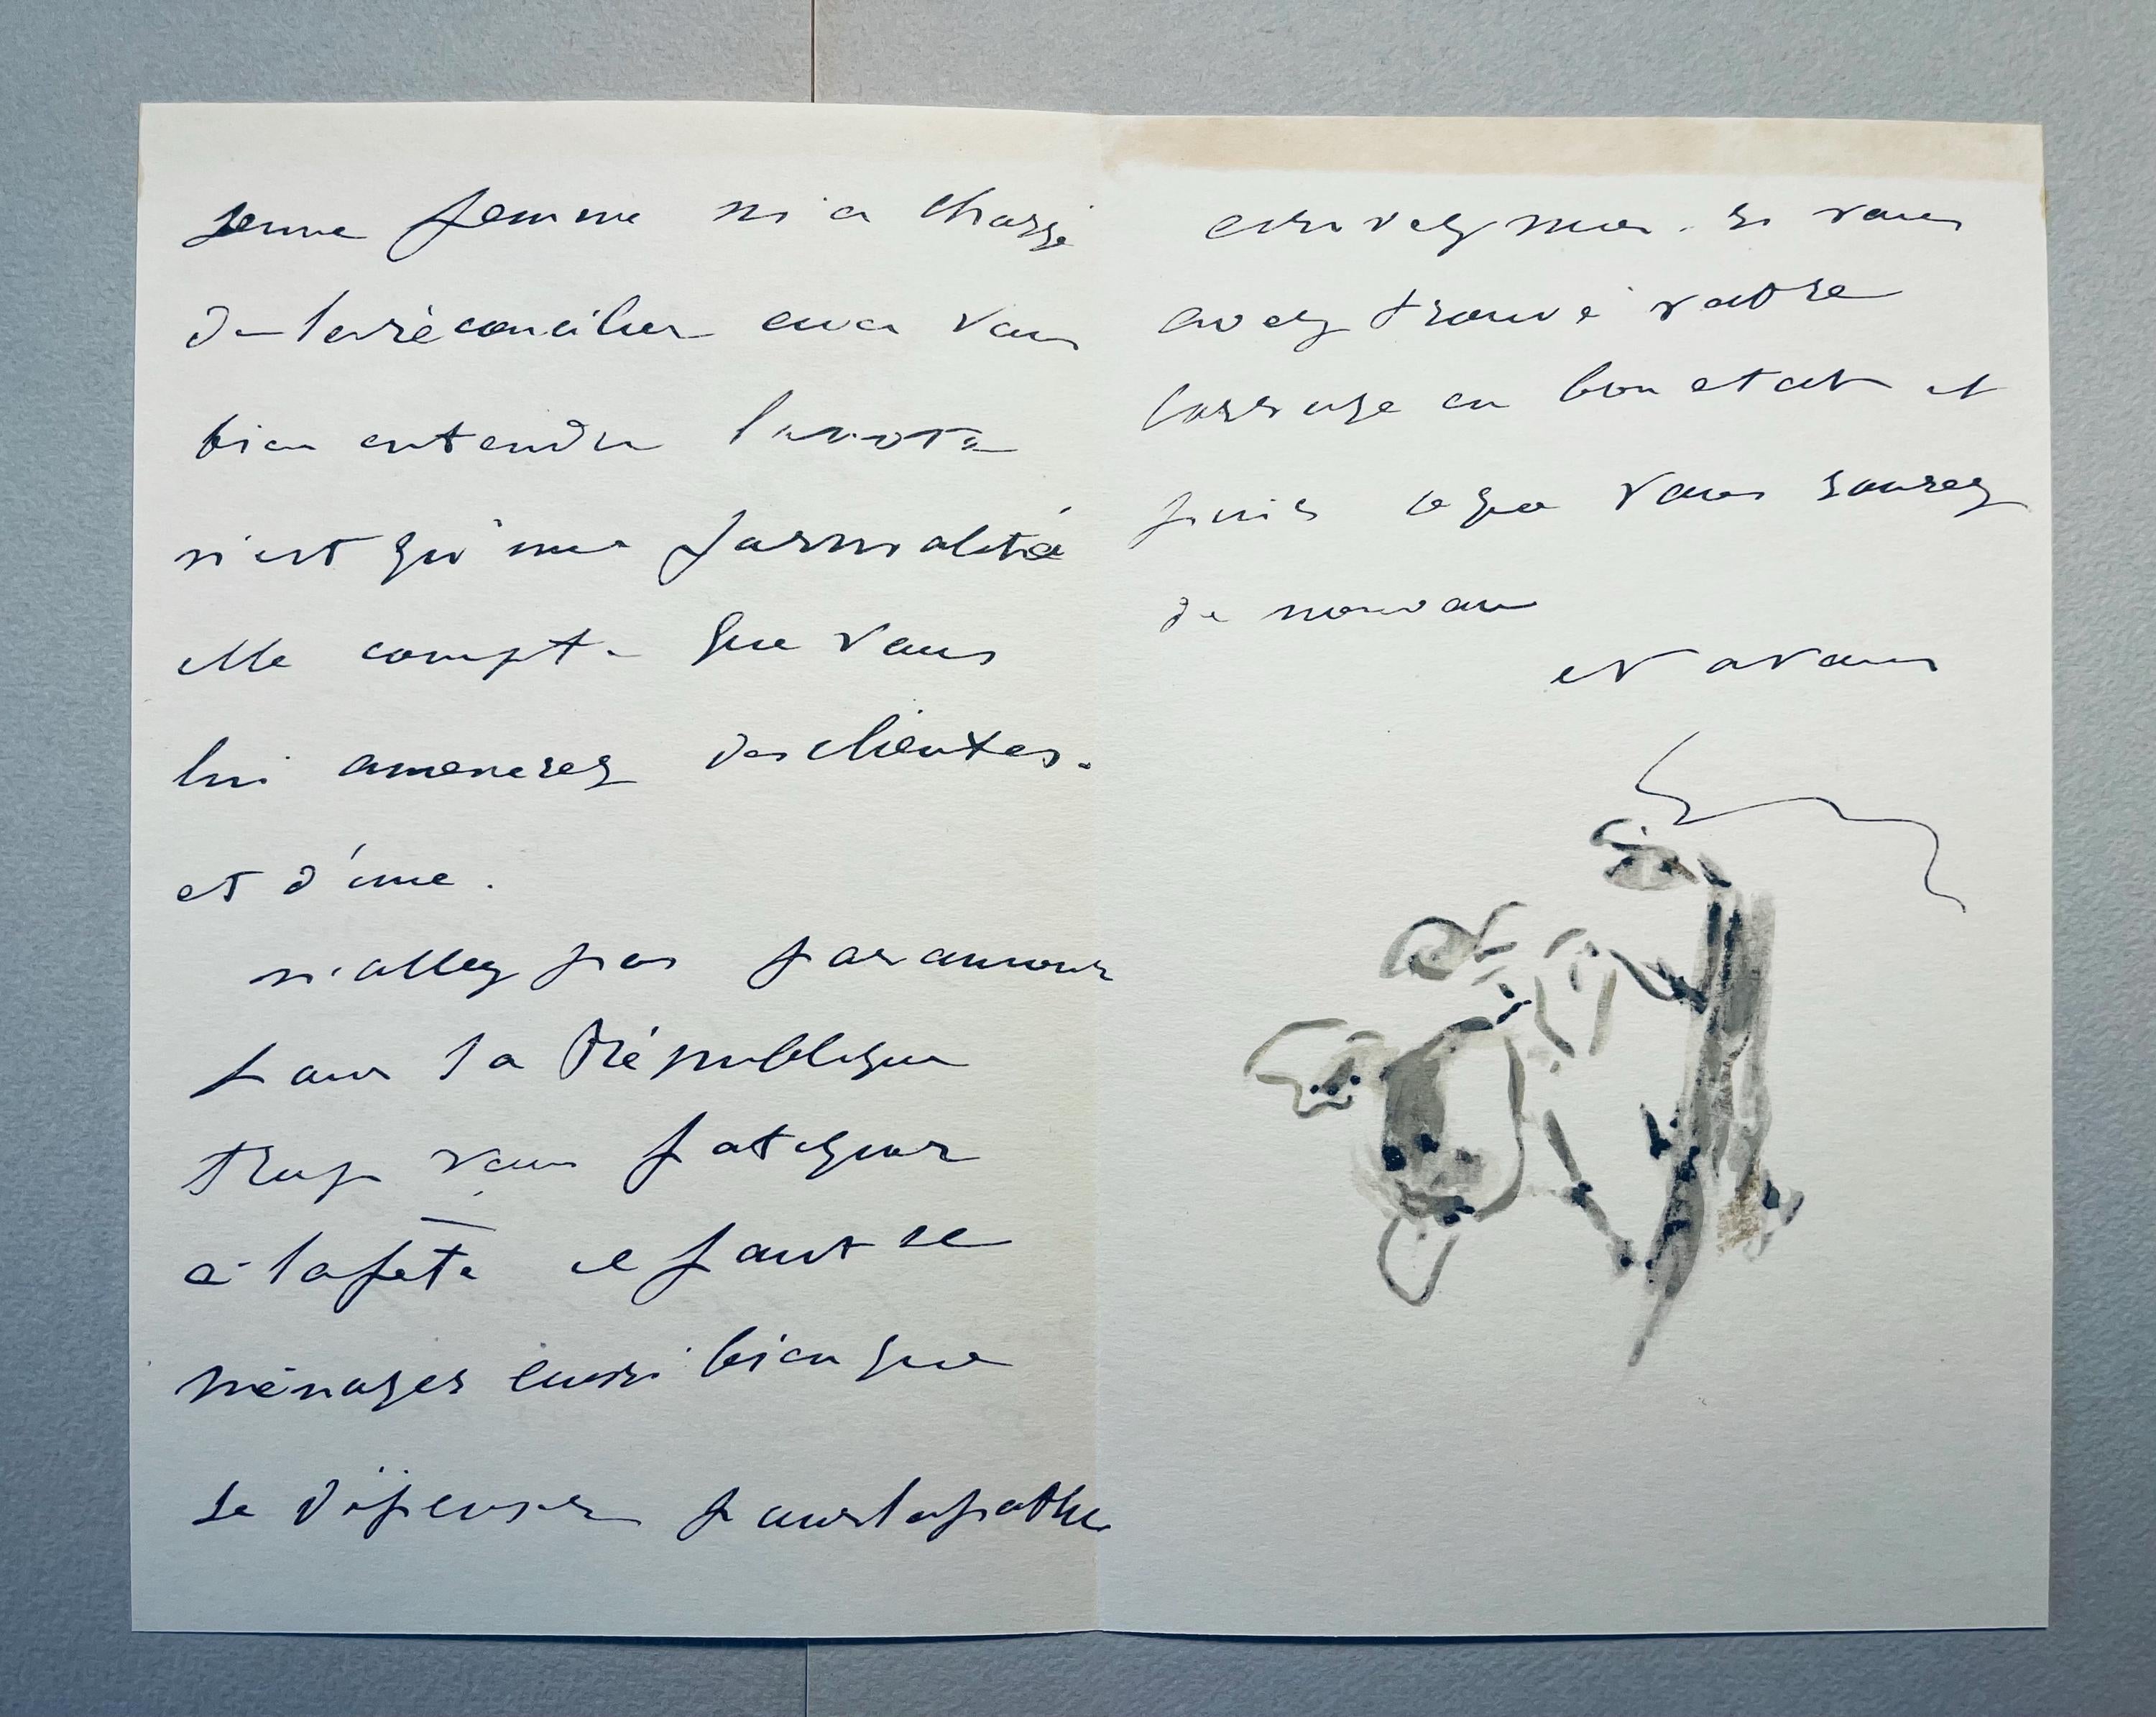 jeune femme m'a chargé
de la réconcilier avec vous
bien entendu
n'est qu'une formalité
elle compte que vous
lui amènerez des clientes.
et d'une.
n'allez pas par amour
pour la République
trop vous fatiguer
à la fête il faut se
ménager aussi bien que
se dépenser pour la
écrivez moi. si vous
avez trouvé votre
en bon etat et
puis ce que vous saurez
de nouveau
et a vous